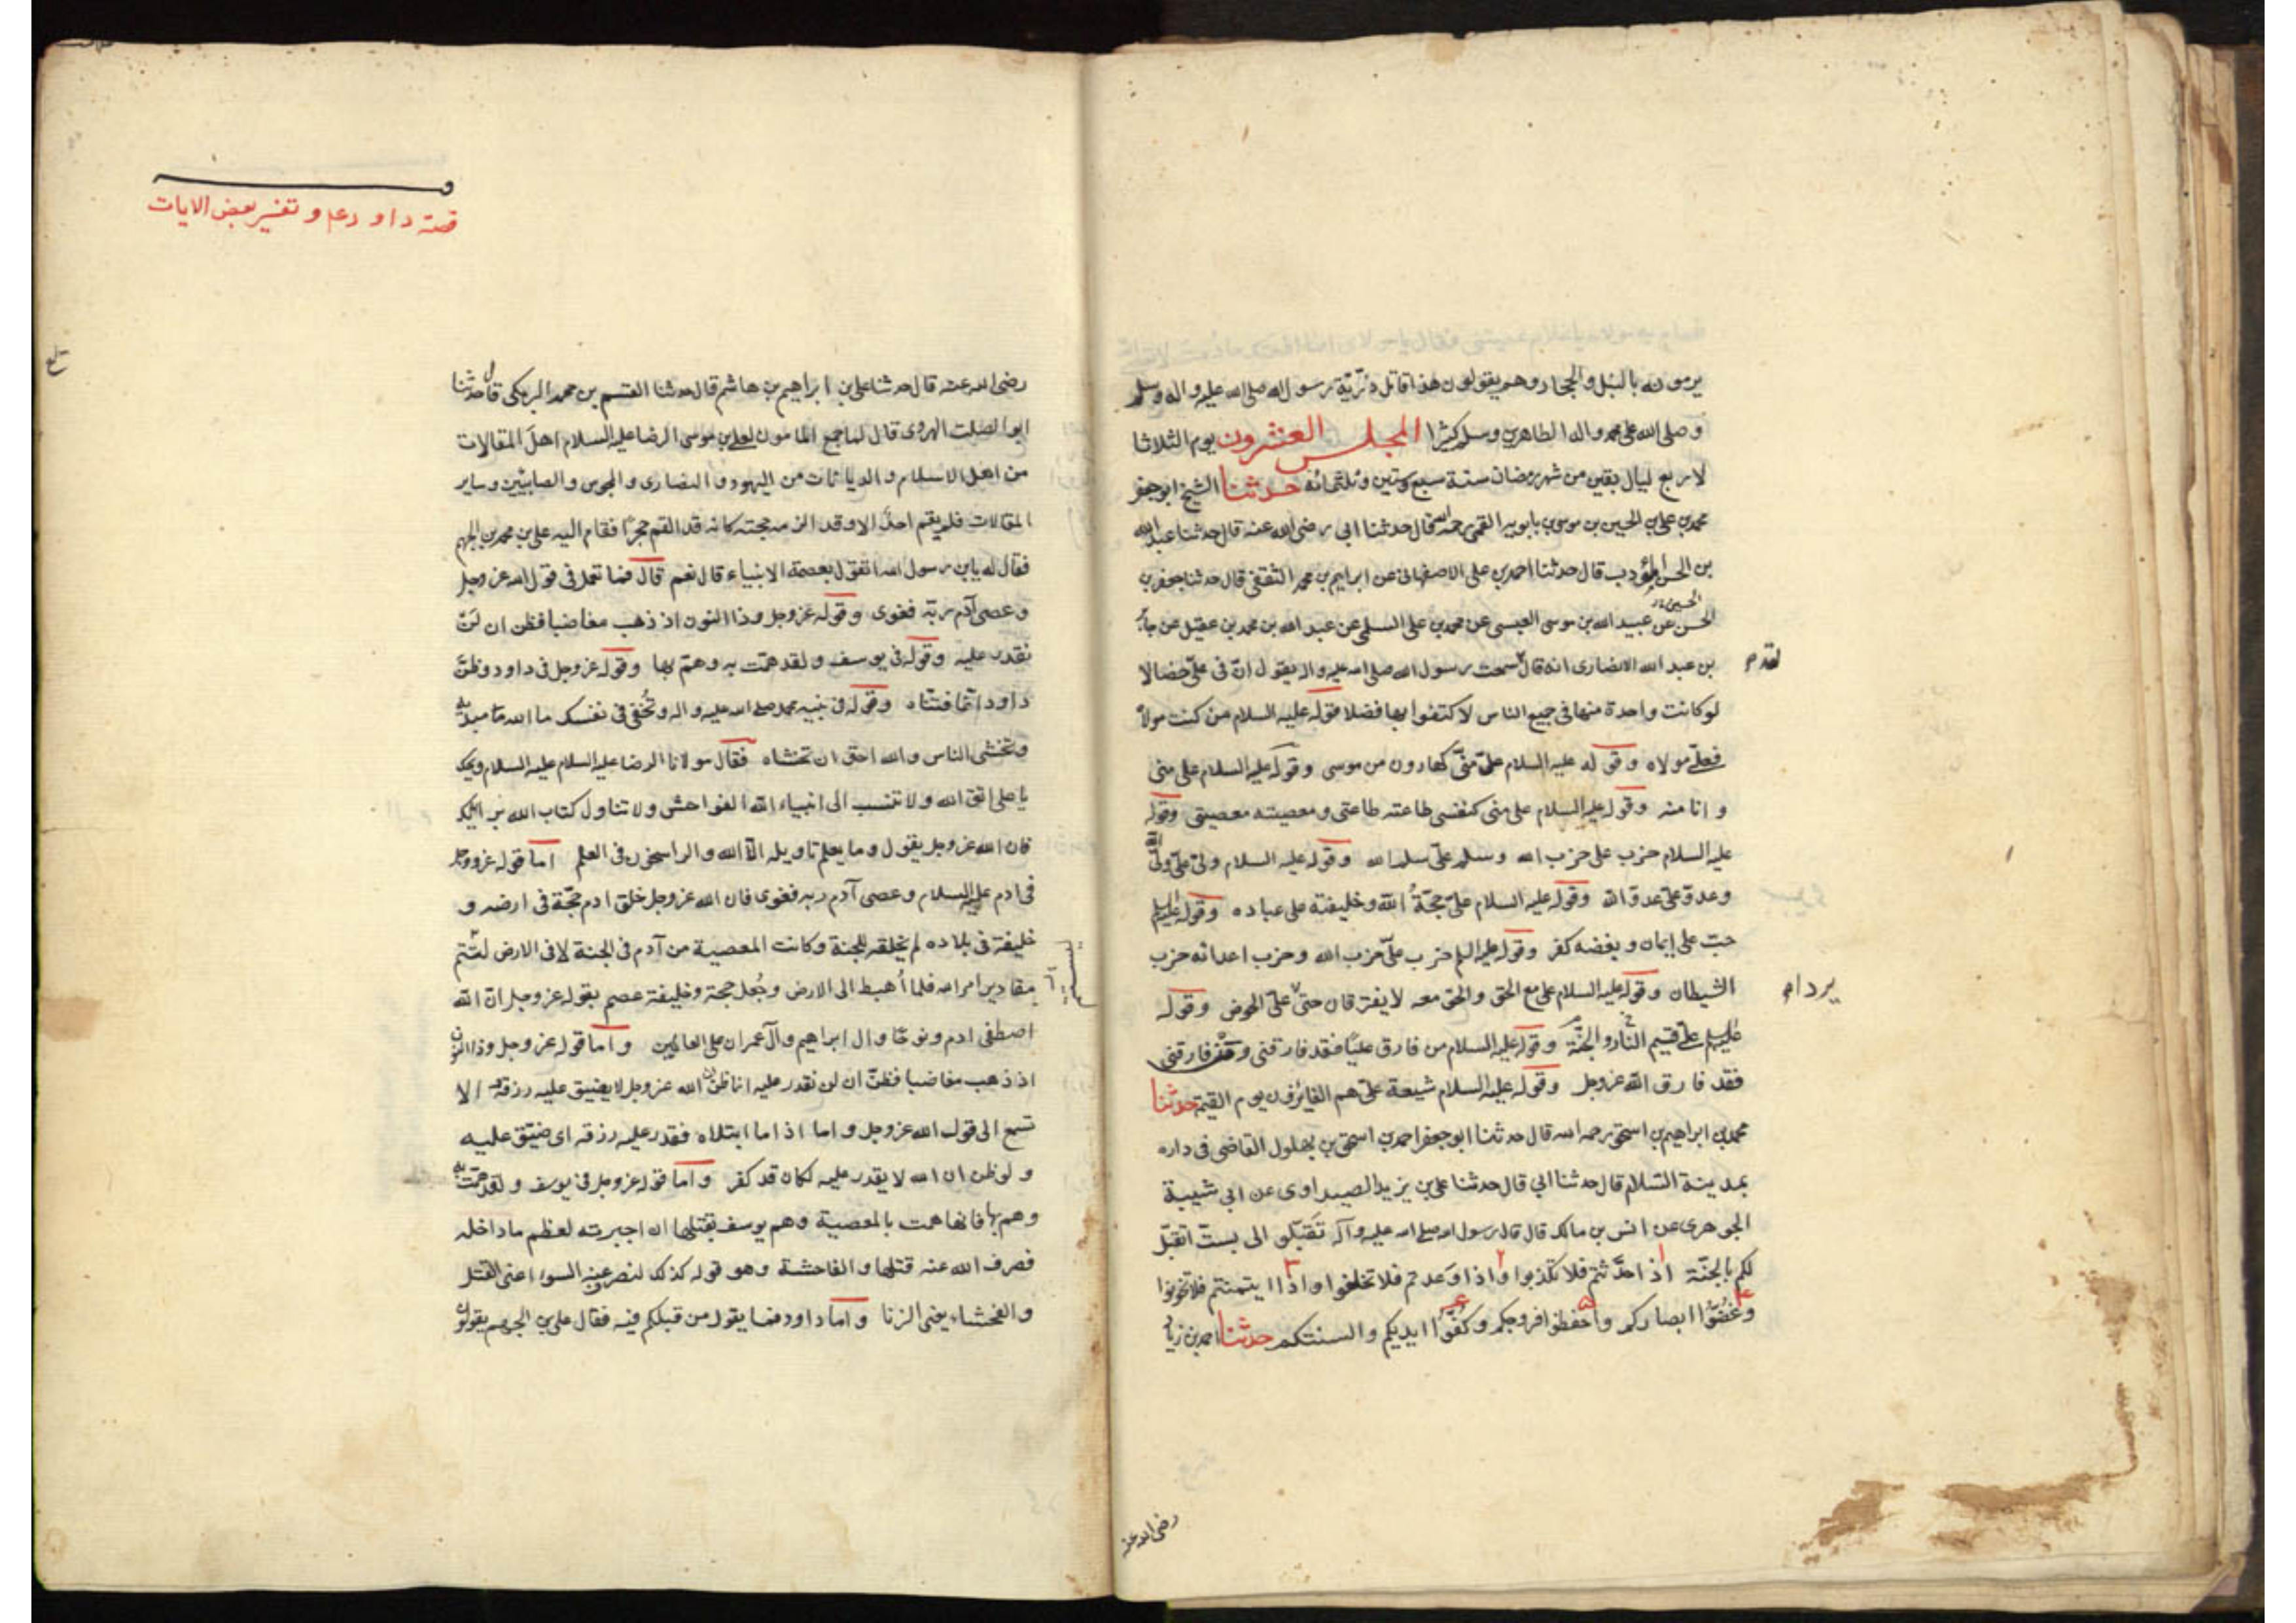 يرمونه بالنبل والحجاره وهم يقولون هذا قاتل ذرّيّة رسول الله صلى الله عليه واله وسلم
وصلى الله على محمد واله الطاهرين وسلم كثيرا المجلس العشرون يوم الثلاثا
لاربع ليال بقين من شهر رمضان سنة سبع وستين وثلثمائه حدثنا الشيخ ابوجعفر
محمد بن علي بن الحسين بن موسى بن بابويه القمي رحمه الله قال حدثنا ابي رضى الله عنه قال حدثنا عبد الله
بن الحسن المؤدب قال حدثنا احمد بن علي الاصفهانى عن ابراهيم بن محمد الثقفى قال حدثنا جعفر بن
الحسين
الحسن عن عبيد الله بن موسى العبسى عن محمد بن على السلمى عن عبد الله بن محمد بن عقيل عن جابر
بن عبد الله الانصارى انه قال سمعت رسول الله صلى الله عليه واله يقول انّ فى علىّ خصالا
لو كانت واحدة منها فى جميع الناس لاكتفوا بها فضلا قوله عليه السلام من كنت مولاه
فعلىّ مولاه وقوله عليه السلام علىّ منّى كهارون من موسى وقوله عليه السلام على منى
وانا منه وقوله عليه السلام على منى كنفسى طاعته طاعتى ومعصيته معصيتى وقوله
عليه السلام حزب على حزب الله وسلم علىّ سلم الله وقوله عليه السلام ولىّ علىّ ولىّ الله
وعدوّ علىّ عدوّ الله وقوله عليه السلام علىّ حجّةُ الله وخليفته على عباده وقوله عليه السلم
حبّ على إيمان وبغضه كفر وقوله عليه السلم حزب علىّ حزب الله وحزب اعدائه حزب
الشيطان وقوله عليه السلام على مع الحق والحق معه لا يفترقان حتى علىّ الحوض وقوله
عليه السلم علىّ قسيم النّار والجنّة وقوله عليه السلام من فارق عليّا فقد فارقنى ومن فارقنى
فقد فارق الله عزوجل وقوله عليه السلام شيعة علىّ هم الفايزون يوم القيمة حدثنا
محمد بن ابراهيم بن اسحق رحمه الله قال حدثنا ابوجعفر احمد بن اسحق بن بهلول القاضى فى داره
بمدينة السّلام قال حدثنا ابي قال حدثنا على بن يزيد الصيداوى عن ابى شيبة
الجوهرى عن انس بن مالك قال قال رسول الله صلى الله عليه وآله تقَبّلوا الى بستّ اتقبّل
لكم بالجنّة اذا حدّثتم فلا تكذبوا واذا وَعدتم فلا تخلفوا واذا ايتمنتم فلا تخونوا
وغضّوا ابصاركم واحفظوا فروجكم وكفّوا ايديكم والسنتكم حدثنا احمد بن زياد
يرد ام
رضى الله عنه
قصّة داود ع و تفسير بعض الايات
رضى الله عنه قال حدثنا على بن ابراهيم بن هاشم قال حدثنا القسم بن محمد البرمكى قال حدثنا
ابوا لصلت الهروى قال لما جمع المامون لعلى بن موسى الرضا عليه السلام اهلَ المقالات
من اهل الاسلام والديانات من اليهود و النصارى والمجوس والصابئين وساير
المقالات فلم يقم احدٌ الا وقد الزمه حجته كانه قد القم حجرًا فقام اليه على بن محمد بن الجهم
فقال له يا بن رسول الله اتقول بعصمة الانبياء قال نعم قال فما تعمل فى قول الله عز وجل
وعصى آدم ربّه فغوى وقوله عز وجل وذا النون اذ ذهب مغاضبا فظن ان لَنْ
نقدر عليه وقوله فى يوسف ولقد همّت به وهمّ بها وقوله عز وجل فى داود وظنّ
داود انّما فتنّاه وقوله فى نبيه محمد صلى الله عليه واله وتُخفى فى نفسك ما الله مبديه
وتخشى الناس والله احق ان تخشاه فقال مولانا الرضا عليه السلام عليه السلام ويحك
يا على اتق الله ولا تنسب الى انبياء الله الفواحش ولا تتاول كتاب الله برايك
فان الله عز وجل يقول وما يعلم تاويله الّا الله والراسخون فى العلم اما قوله عز وجل
فى ادم عليه السلام وعصى آدم ربه فغوى فان الله عز وجل خلق ادم حجّة فى ارضه و
خليفة فى بلاده لم يخلقه للجنة وكانت المعصية من آدم فى الجنة لا فى الارض لتتم
مقادير امر الله فلما أُهبط الى الارض وجُعل حجة وخليفة عصم بقوله عز وجل انّ الله
اصطفى ادم ونوحًا وال ابراهيم وآل عمران على العالمين واما قوله عز وجل وذا النون
اذ ذهب مغاضبا فظنّ ان لن نقدر عليه انما ظنّ ان الله عز وجل لا يضيق عليه رزقه الا
تسمع الى قول الله عز وجل واما اذا ما ابتلاه فقدر عليه رزقه اى ضيّق عليه
ولو ظن ان الله لا يقدر عليه لكان قد كفر واما قوله عز وجل فى يوسف ولقد همّت به
وهم بها فانها همت بالمعصية وهم يوسف بقتلها ان اجبرته لعظم ما داخله
فصرف الله عنه قتلها والفاحشة وهو قوله كذلك لنصرف عنه السوء اعنى القتل
والفحشاء يعنى الزنا واما داود فما يقول من قبلكم فيه فقال على بن الجهم يقولون